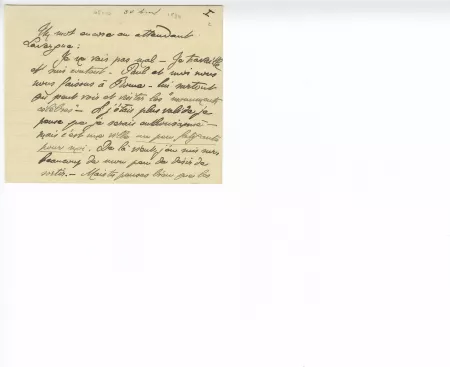 30 Avril I
Un mot encore en attendant
Lavergne :
Je ne vais pas mal – Je travaille
et suis content. Paul et moi nous
nous plaisons à Rome – lui surtout
qui peut voir et visiter les "monuments
célèbres – Si j'étais plus valide je
pense que je serais enthousiasmé –
mais c'est une ville un peu fatigante
pour moi. De là vient, j'en suis
beaucoup de mon peu de désir de
sortir. – Mais tu penses bien que les